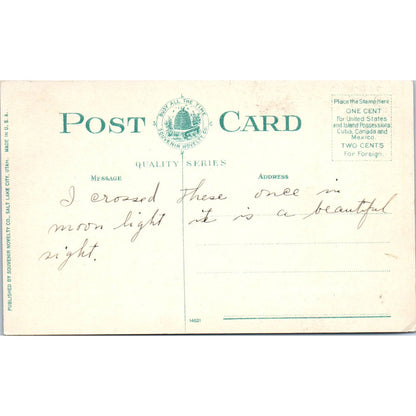 BUSY ALL THE TIME
SOUVENIR NOVELTY CO.
POST CARD
QUALITY SERIES
Place the Stamp here
ONE CENT
For United States
and Island Possessions
Cuba, Canada and
Mexico.
TWO CENTS
For Foreign.
MESSAGE
ADDRESS
I crossed these once in
moon light it is a beautiful
sight.
14621
PUBLISHED BY SOUVENIR NOVELTY CO., SALT LAKE CITY, UTAH. MADE IN U.S.A.